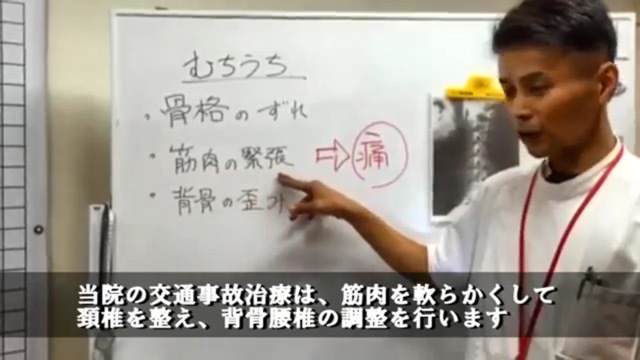 むちうち
・骨格のずれ
・筋肉の緊張 ⇨ 痛
・背骨の歪み
当院の交通事故治療は、筋肉を軟らかくして
頚椎を整え、背骨腰椎の調整を行います